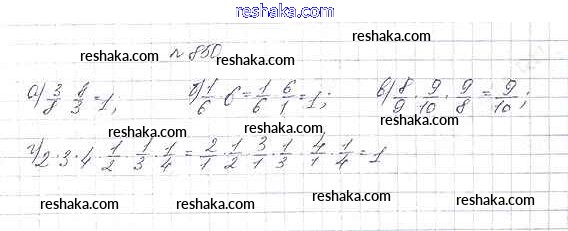 reshaka.com
reshaka.com
№ 850
reshaka.com reshaka.com reshaka.com
а) 3/8 · 8/3 = 1; б) 1/6 · 6 = 1/6 · 6/1 = 1; в) 8/9 · 9/10 · 9/8 = 9/10;
reshaka.com reshaka.com reshaka.com
г) 2 · 3 · 4 · 1/2 · 1/3 · 1/4 = 2/1 · 1/2 · 3/1 · 1/3 · 4/1 · 1/4 = 1
reshaka.com reshaka.com reshaka.com